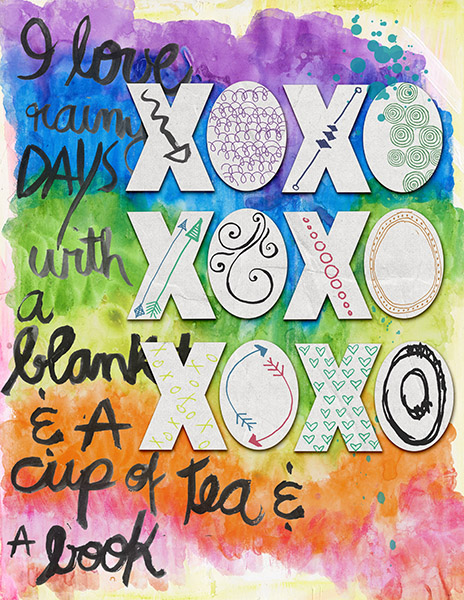 I love
rainy
DAYS
with
a
blanket
& A
cup of tea &
A book
XOXO
XOXO
XOXO